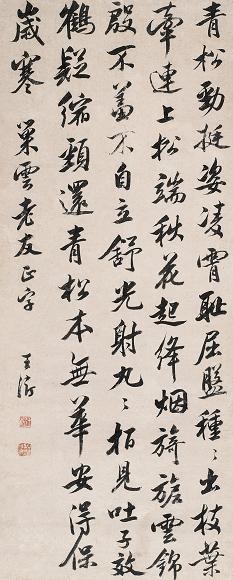 青松勁挺姿凌霄耻屈盤種〻出枝葉
牽連上松端秋花起絳烟旖旎雲錦
殷不羞不自立舒光射丸〻柏見吐子效
鶴疑縮頸還青松本無華安得保
歲寒
巢雲老友正字
王